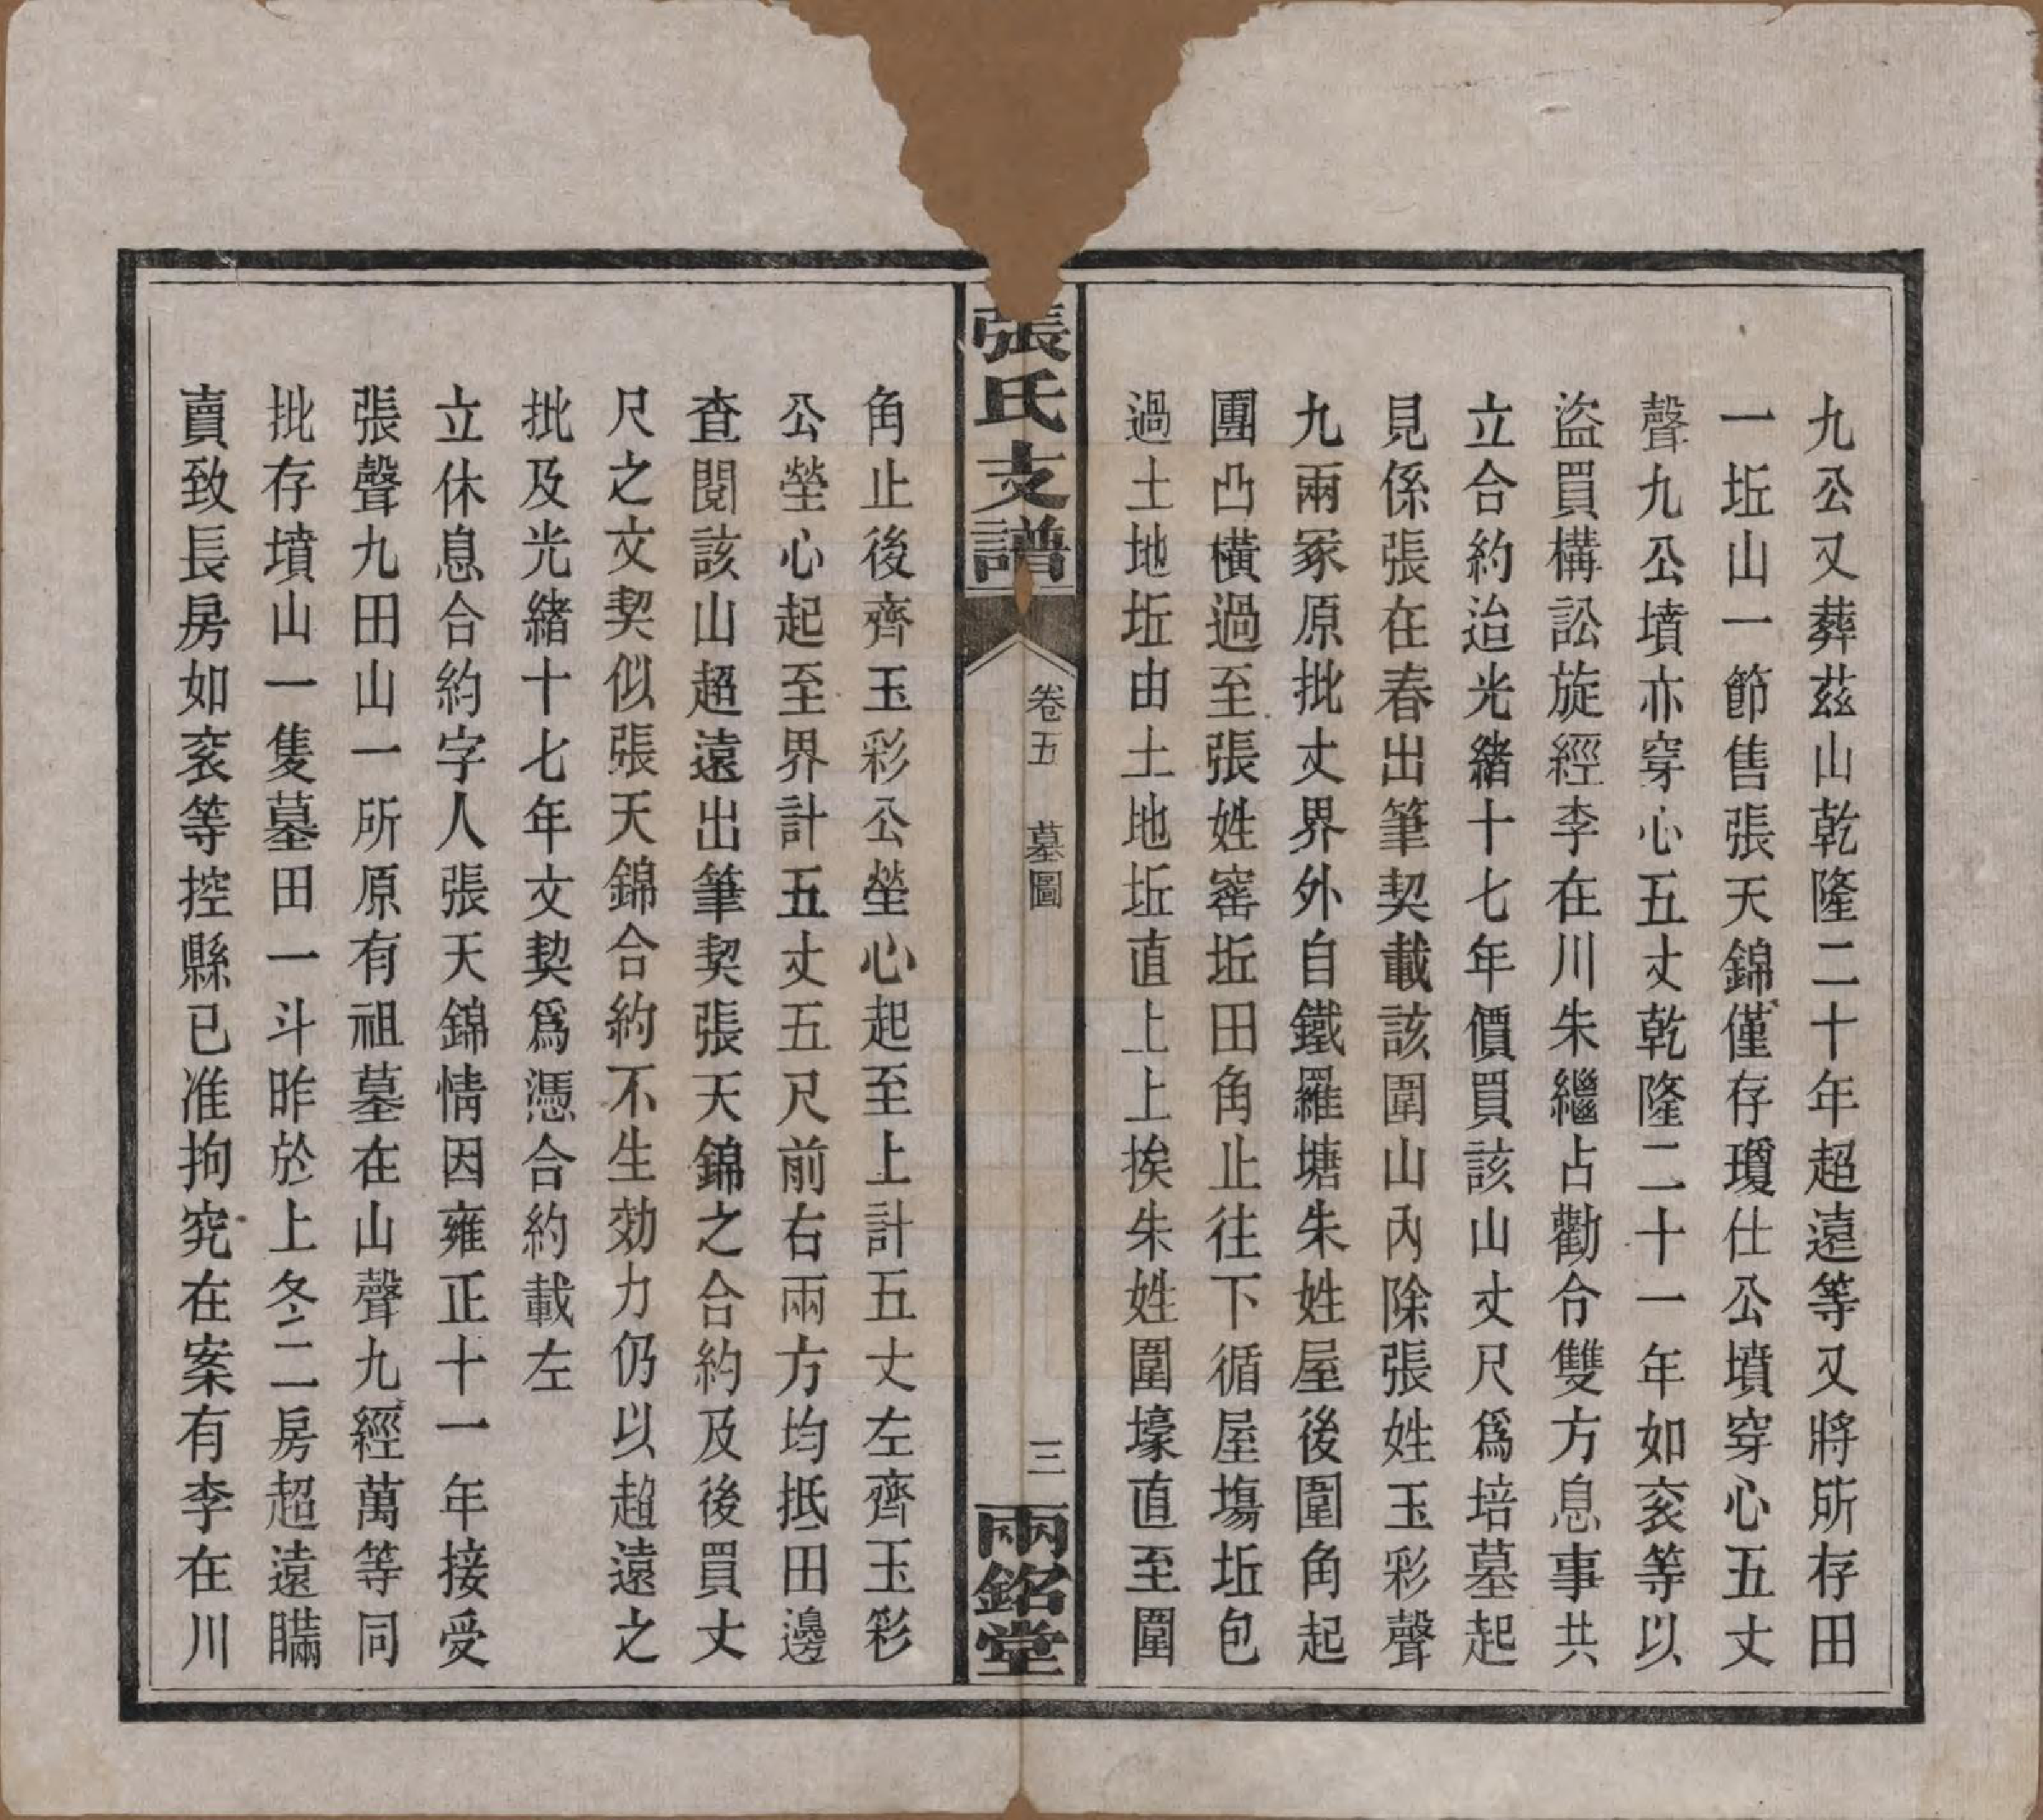 九公又葬茲山乾隆二十年超遠等又將所存田
一坵山一節售張天錦僅存瓊仕公墳穿心五丈
聲九公墳亦穿心五丈乾隆二十一年如袞等以
盜買構訟旋經李在川朱繼占勸令雙方息事共
立合約迨光緒十七年價買該山丈尺爲培墓起
見係張在春出筆契載該圍山內除張姓玉彩聲
九兩冢原批丈界外自鐵羅塘朱姓屋後圍角起
團凸橫過至張姓窰坵田角止往下循屋塲坵包
過土地坵由土地坵直上上挨朱姓圍壕直至圍
張氏支譜
卷五 墓圖
三
兩銘堂
角止後齊玉彩公塋心起至上計五丈左齊玉彩
公塋心起至界計五丈五尺前右兩方均抵田邊
查閱該山超遠出筆契張天錦之合約及後買丈
尺之文契似張天錦合約不生効力仍以超遠之
批及光緒十七年文契爲憑合約載左
立休息合約字人張天錦情因雍正十一年接受
張聲九田山一所原有祖墓在山聲九經萬等同
批存墳山一隻墓田一斗昨於上冬二房超遠瞞
賣致長房如袞等控縣已准拘究在案有李在川